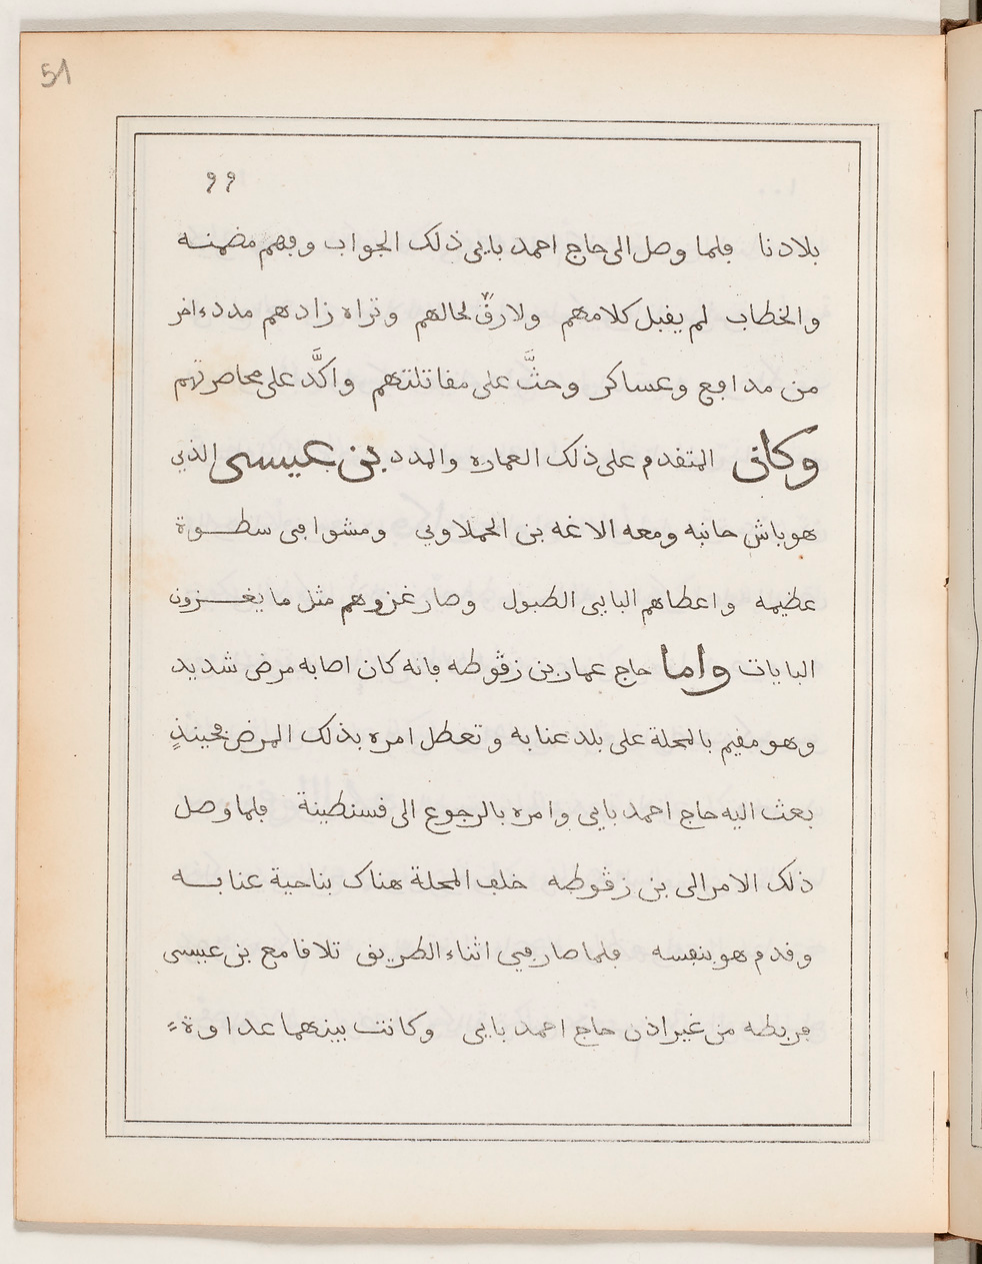 51
99
بلادنا فلما وصل الى حاج احمد بايى ذلك الجواب وفهم مضمنه
والخطاب لم يقبل كلامهم ولا رقّ لحالهم وتراه زادهم مدد ءاخر
من مدافع وعساكر وحثّ على مقاتلتهم واكَّد على محاصرتهم
وكان المتقدم على ذلك العماره والمدد بن عيسى الذي
هو باش حانبه ومعه الاغه بن الحملاوي ومشوا في سطوة
عظيمه واعطاهم البايى الطبول وصار غزوهم مثل ما يغزون
البايات واما حاج عمار بن زڤوطه فانه كان اصابه مرض شديد
وهو مقيم بالمحلة على بلد عنابه وتعطل امره بذلك المرض فحينئذٍ
بعث اليه حاج احمد بايى وامره بالرجوع الى قسنطينة فلما وصل
ذلك الامر الى بن زڤوطه خلف المحلة هناك بناحية عنابه
وقدم هو بنفسه فلما صار في اثناء الطريق تلاقا مع بن عيسى
فربطه من غير اذن حاج احمد بايى وكانت بينهما عداوة